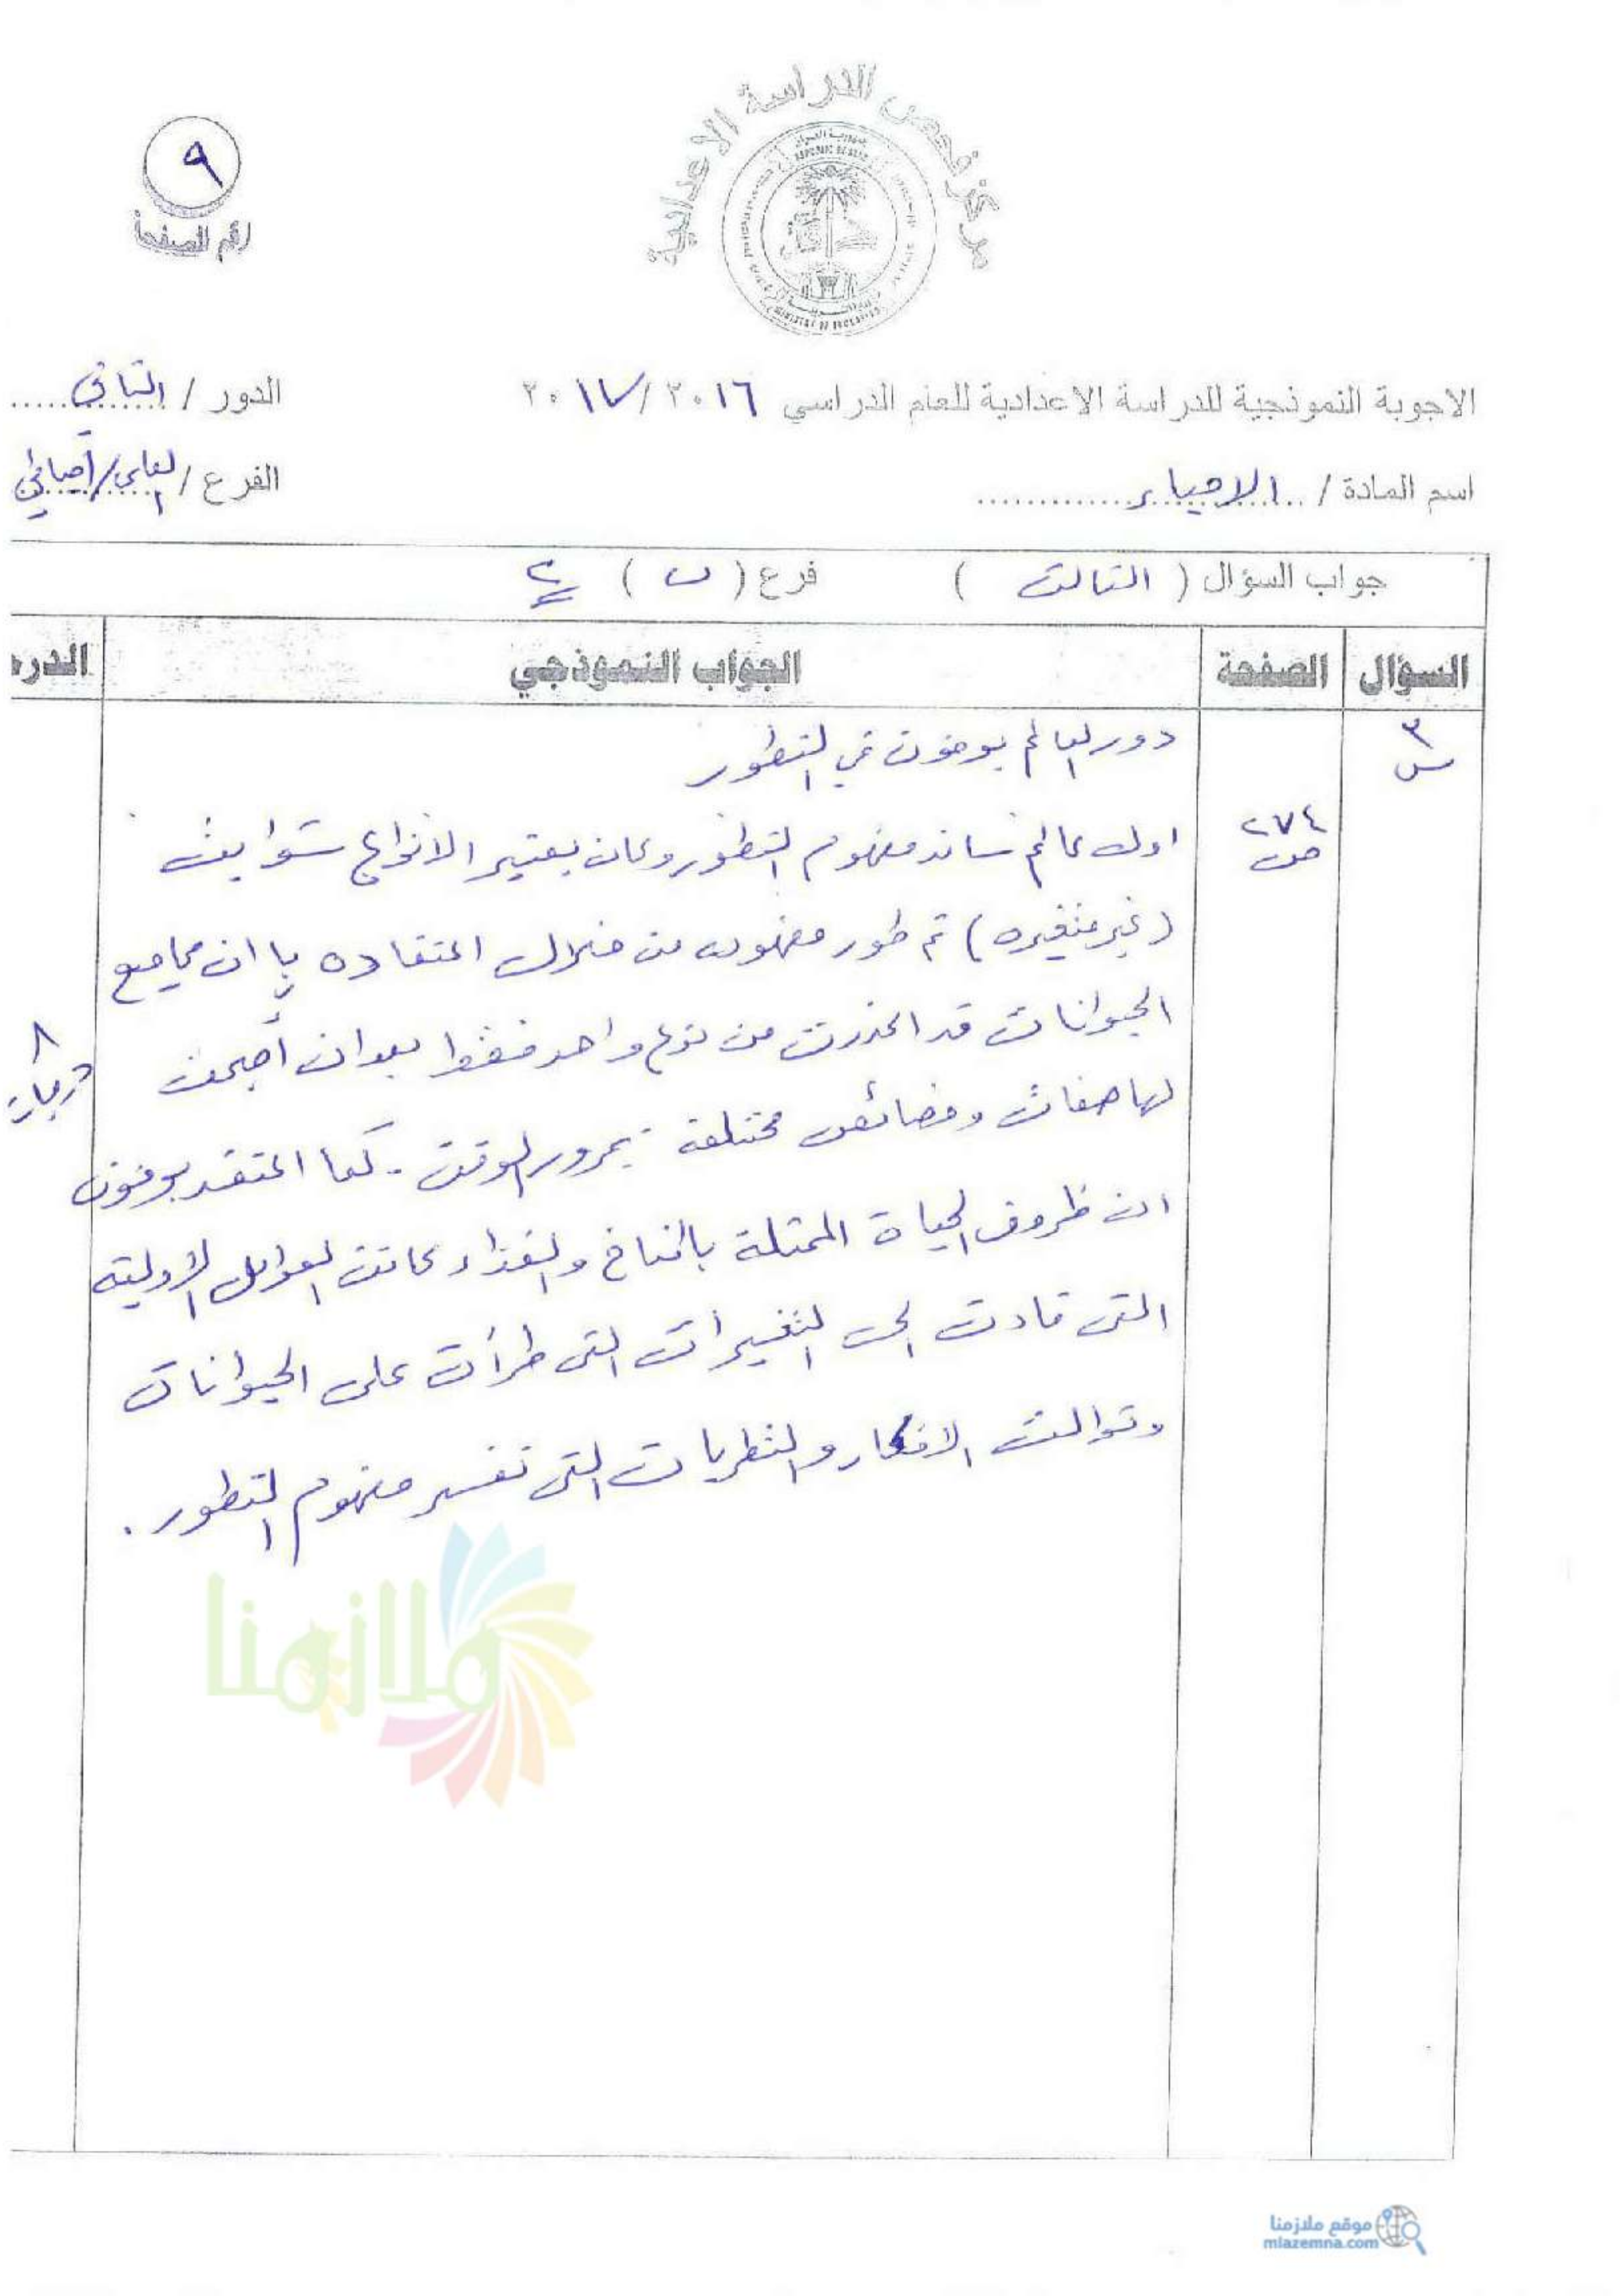 مركز فحص الدراسة الاعدادية
جمهورية العراق
REPUBLIC OF IRAQ
MINISTRY OF EDUCATION
٩
رقم الصفحة
الاجوبة النموذجية للدراسة الاعدادية للعام الدراسي ٢٠١٦ / ٢٠١٧
الدور / الثاني
اسم المادة / الاحياء
الفرع / العلمي / أحيائي
جواب السؤال ( الثالث ) فرع ( ب ) ٢
السؤال الصفحة الجواب النموذجي الدرجة
س٣ دور العالم بوفون في التطور
ص ٢٧٤ اول عالم ساند مفهوم التطور وكان يعتبر الانواع ثوابت
(غير متغيره) ثم طور مفهومه من خلال اعتقاده بأن مجاميع
الحيوانات قد انحدرت من نوع واحد فقط بعد ان أصبحت
٨ درجات
لها صفات وخصائص مختلفة بمرور الوقت . كما اعتقد بوفون
ان ظروف الحياة المتمثلة بالمناخ والغذاء كانت العوامل الاولية
التي قادت الى التغييرات التي طرأت على الحيوانات
وتوالت الافكار والنظريات التي تفسر مفهوم التطور .
ملازمنا
موقع ملازمنا
mlazemna.com